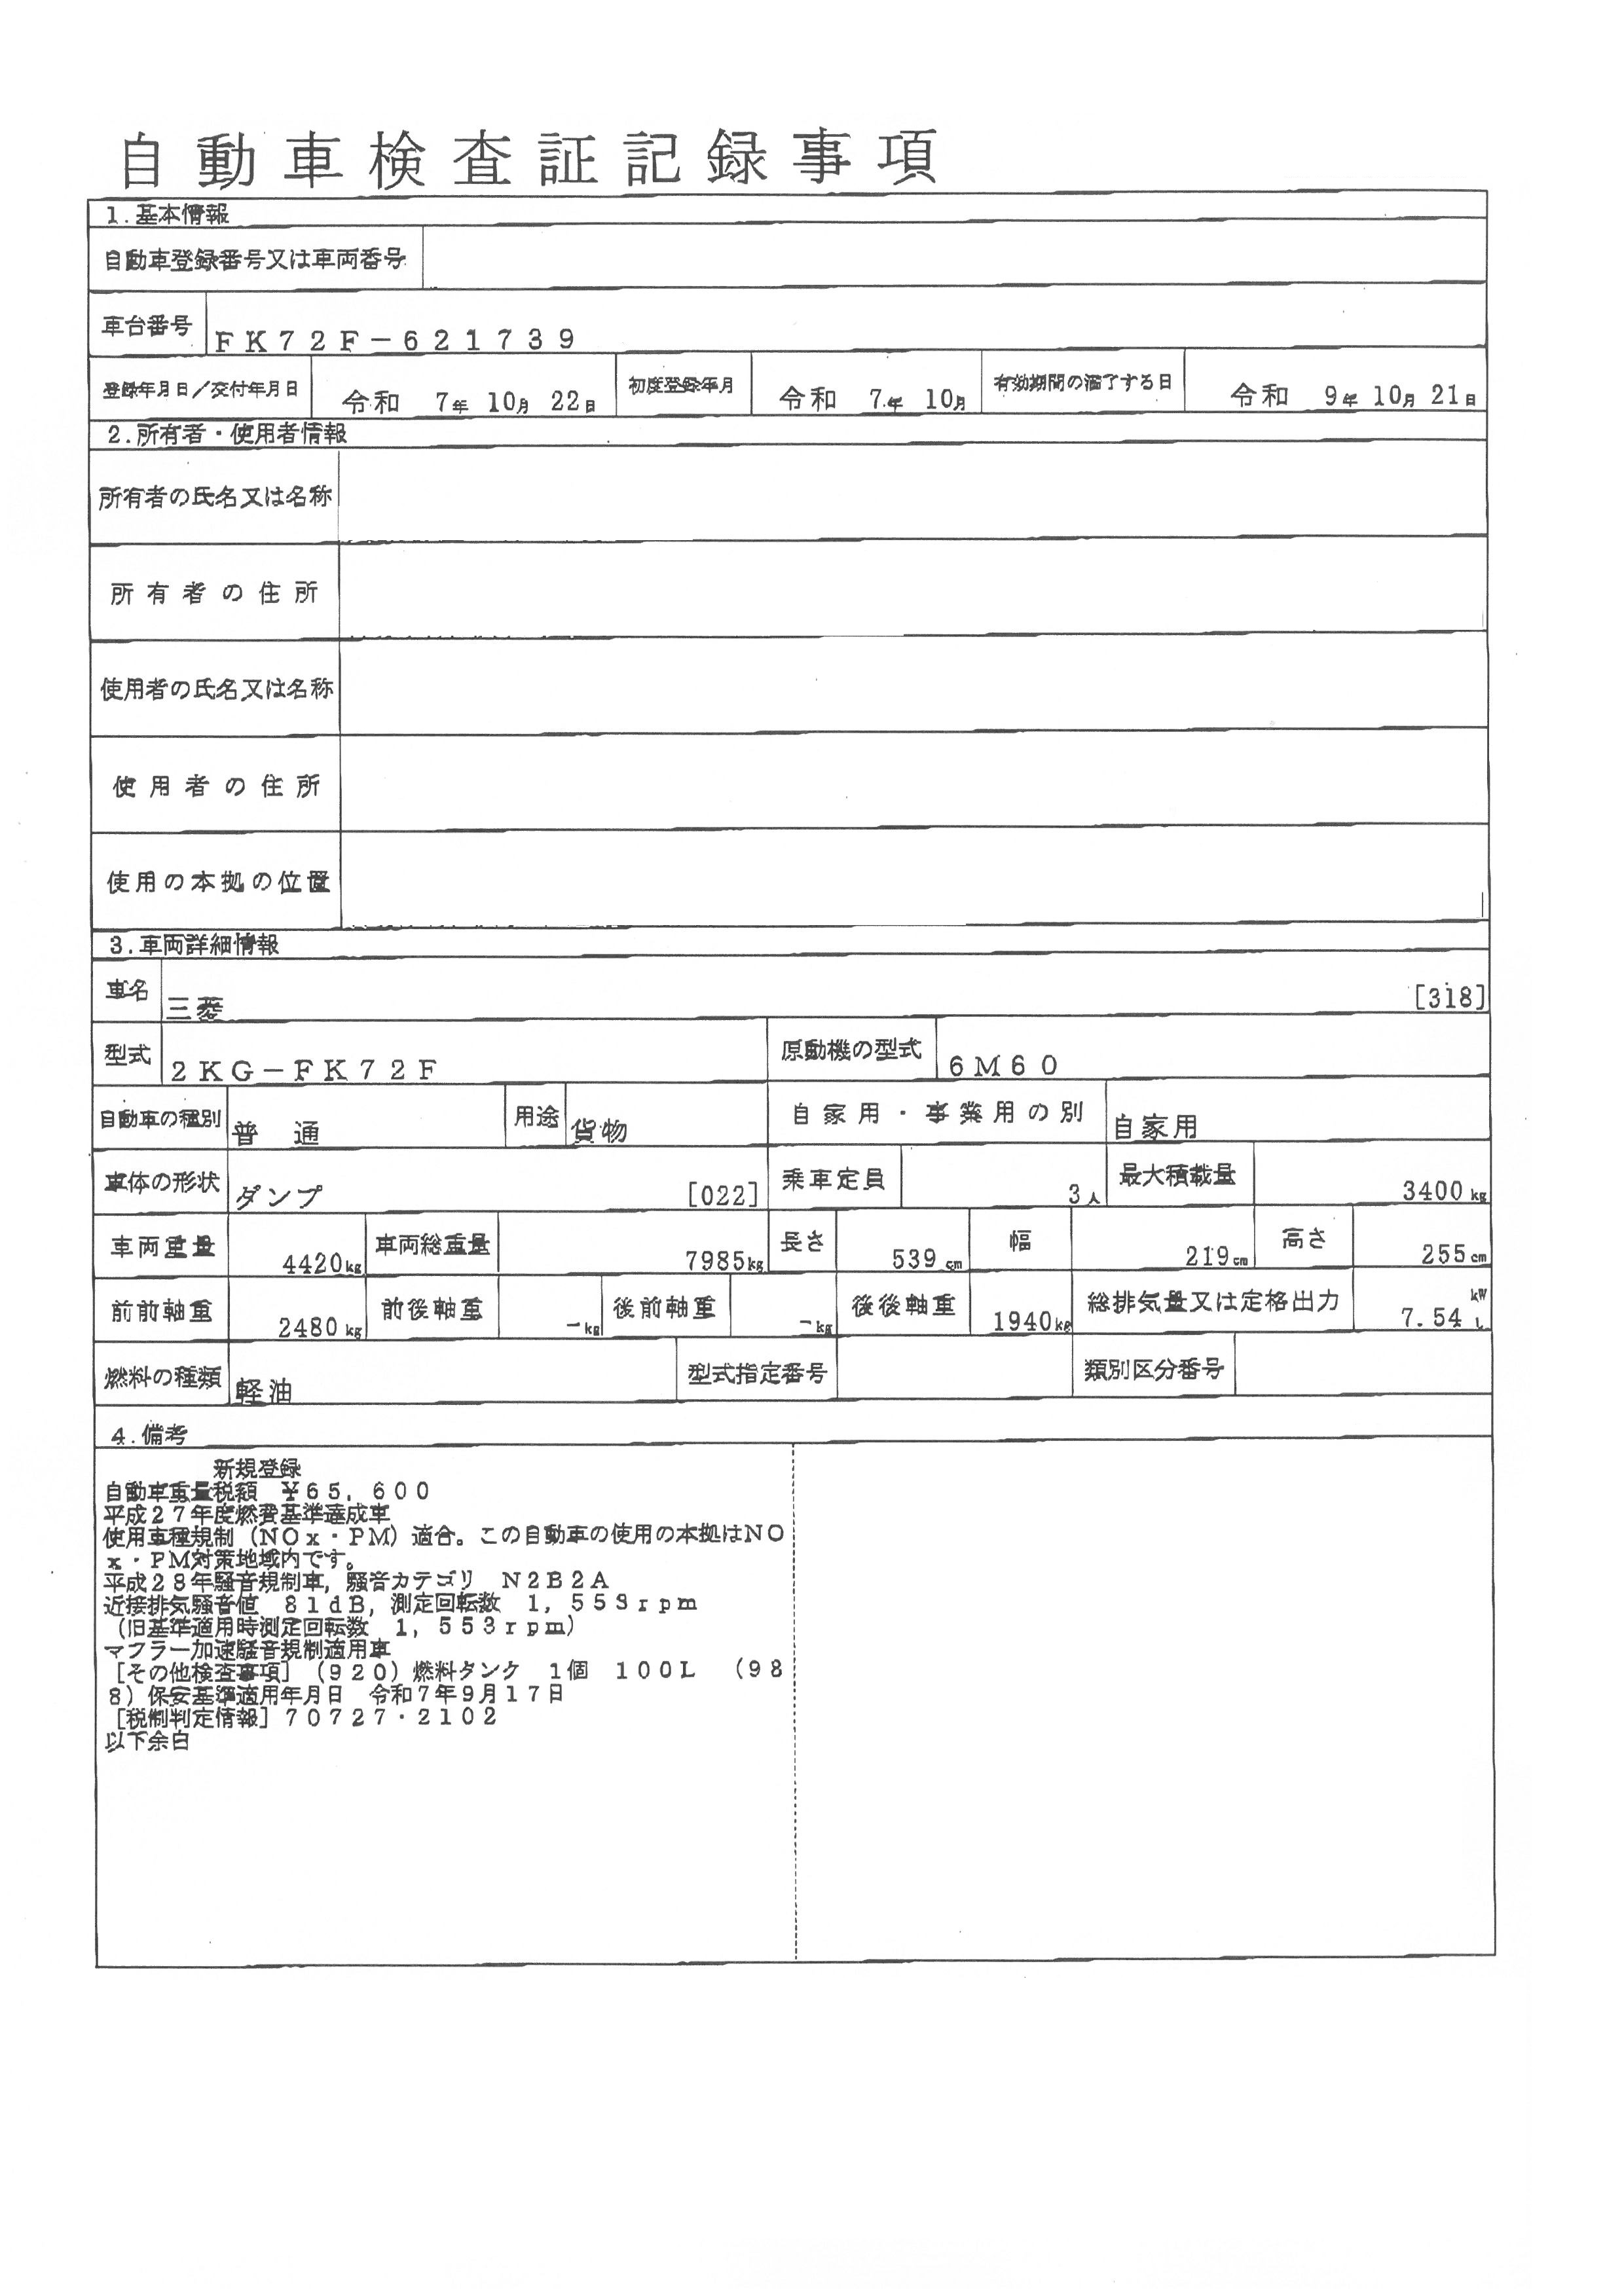 自動車検査証記録事項
1.基本情報
自動車登録番号又は車両番号
車台番号 FK72F－621739
登録年月日／交付年月日 令和 7年 10月 22日 初度登録年月 令和 7年 10月 有効期間の満了する日 令和 9年 10月 21日
2.所有者・使用者情報
所有者の氏名又は名称
所有者の住所
使用者の氏名又は名称
使用者の住所
使用の本拠の位置
3.車両詳細情報
車名 三菱 [318]
型式 2KG－FK72F 原動機の型式 6M60
自動車の種別 普 通 用途 貨物 自家用・事業用の別 自家用
車体の形状 ダンプ [022] 乗車定員 3人 最大積載量 3400kg
車両重量 4420kg 車両総重量 7985kg 長さ 539cm 幅 219cm 高さ 255cm
前前軸重 2480kg 前後軸重 －kg 後前軸重 －kg 後後軸重 1940kg 総排気量又は定格出力 7.54 kW L
燃料の種類 軽油 型式指定番号 類別区分番号
4.備考
新規登録
自動車重量税額 ￥65，600
平成27年度燃費基準達成車
使用車種規制（NOx・PM）適合。この自動車の使用の本拠はNO
x・PM対策地域内です。
平成28年騒音規制車，騒音カテゴリ N2B2A
近接排気騒音値 81dB，測定回転数 1，553rpm
（旧基準適用時測定回転数 1，553rpm）
マフラー加速騒音規制適用車
［その他検査事項］（920）燃料タンク 1個 100L （98
8）保安基準適用年月日 令和7年9月17日
［税制判定情報］70727・2102
以下余白